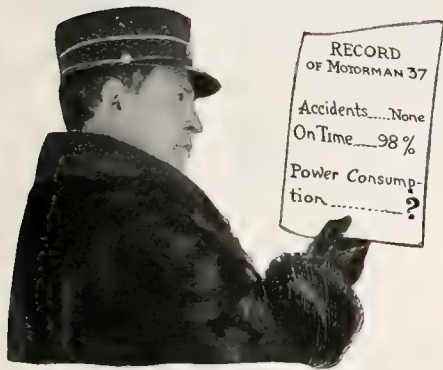 RECORD
OF MOTORMAN 37
Accidents.....None
On Time___98%
Power Consump-
tion...........?